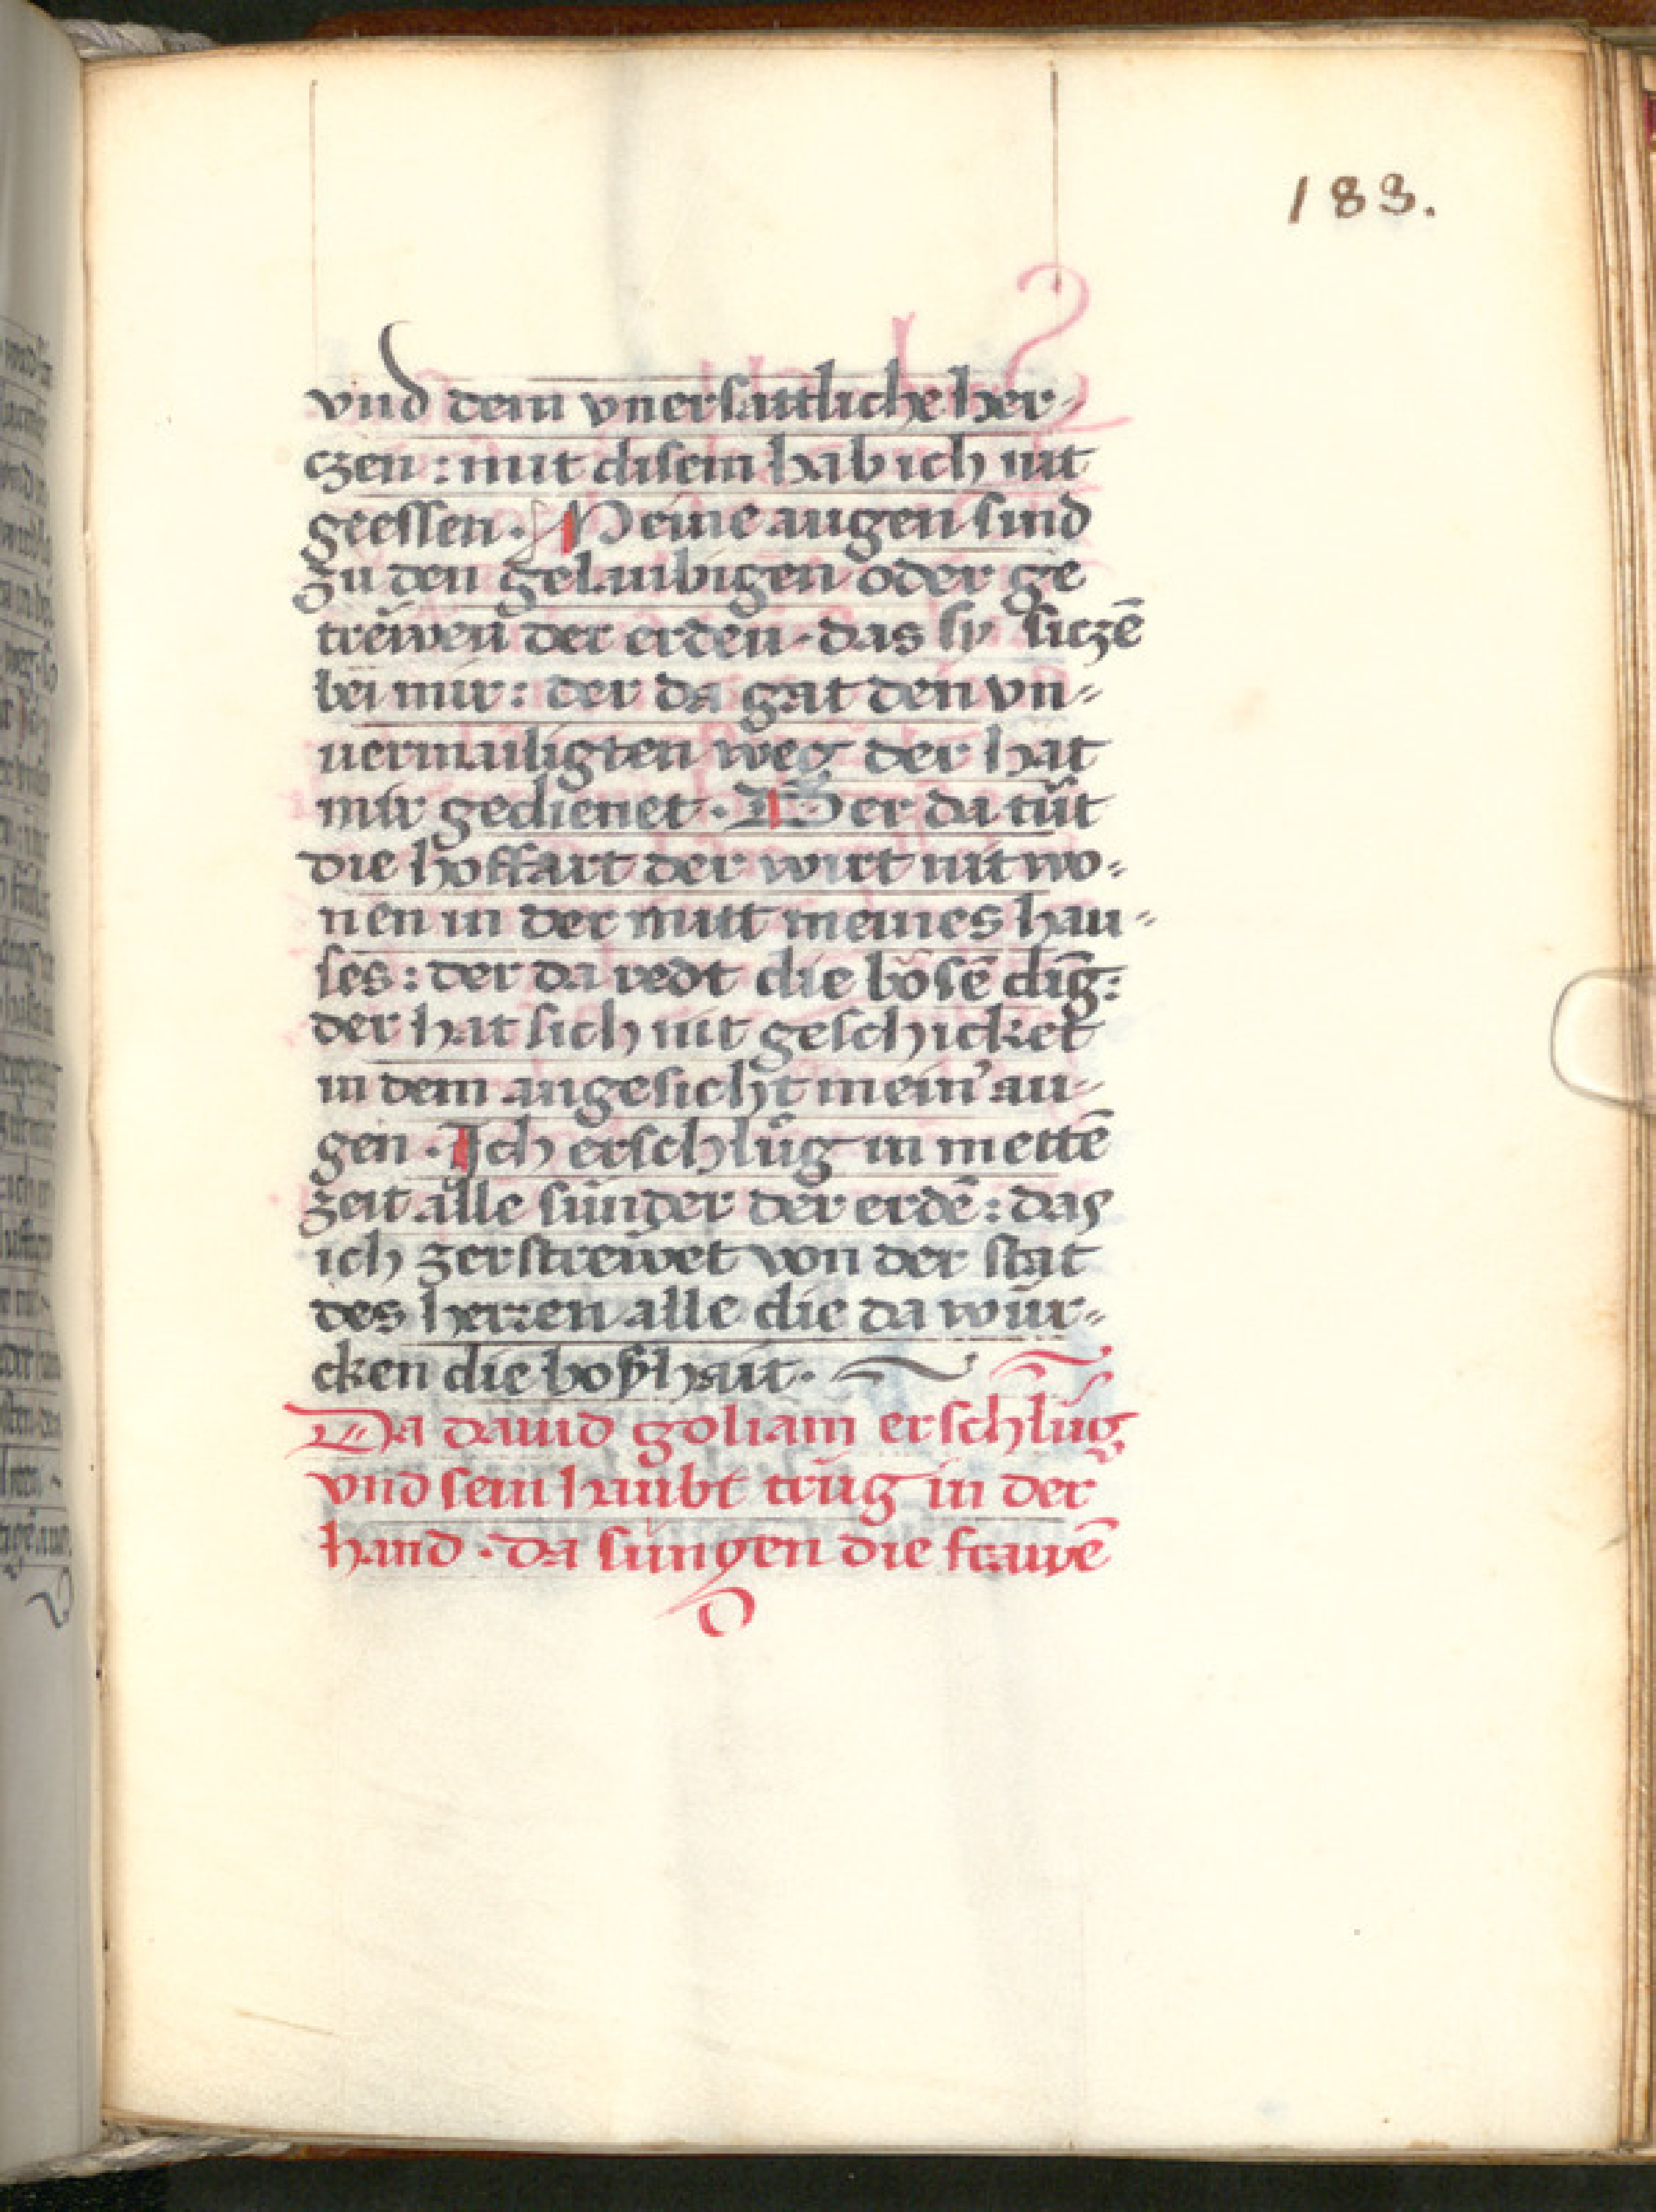 183.
vnd dem vnersattliche her-
czen : mit disem hab ich nit
geessen . Meine augen sind
zu den gelaubigen oder ge
trewen der erden . das sy siczē
bei mir : der da gat den vn=
uermailigten weg der hat
mir gedienet . Wer da tůt
die hoffart der wirt nit wo=
nen in der mitt meines hau=
ses : der da redt die bösē ding:
der hat sich nit geschicket
in dem angesicht mein' au=
gen . Ich erschlůg in mettē
zeit alle sünder der erdē : das
ich zerstrewet von der stat
des herren alle die da wür=
cken die boßhait .
Da dauid goliam erschlůg
vnd sein haubt trůg in der
hand . da sungen die frawē